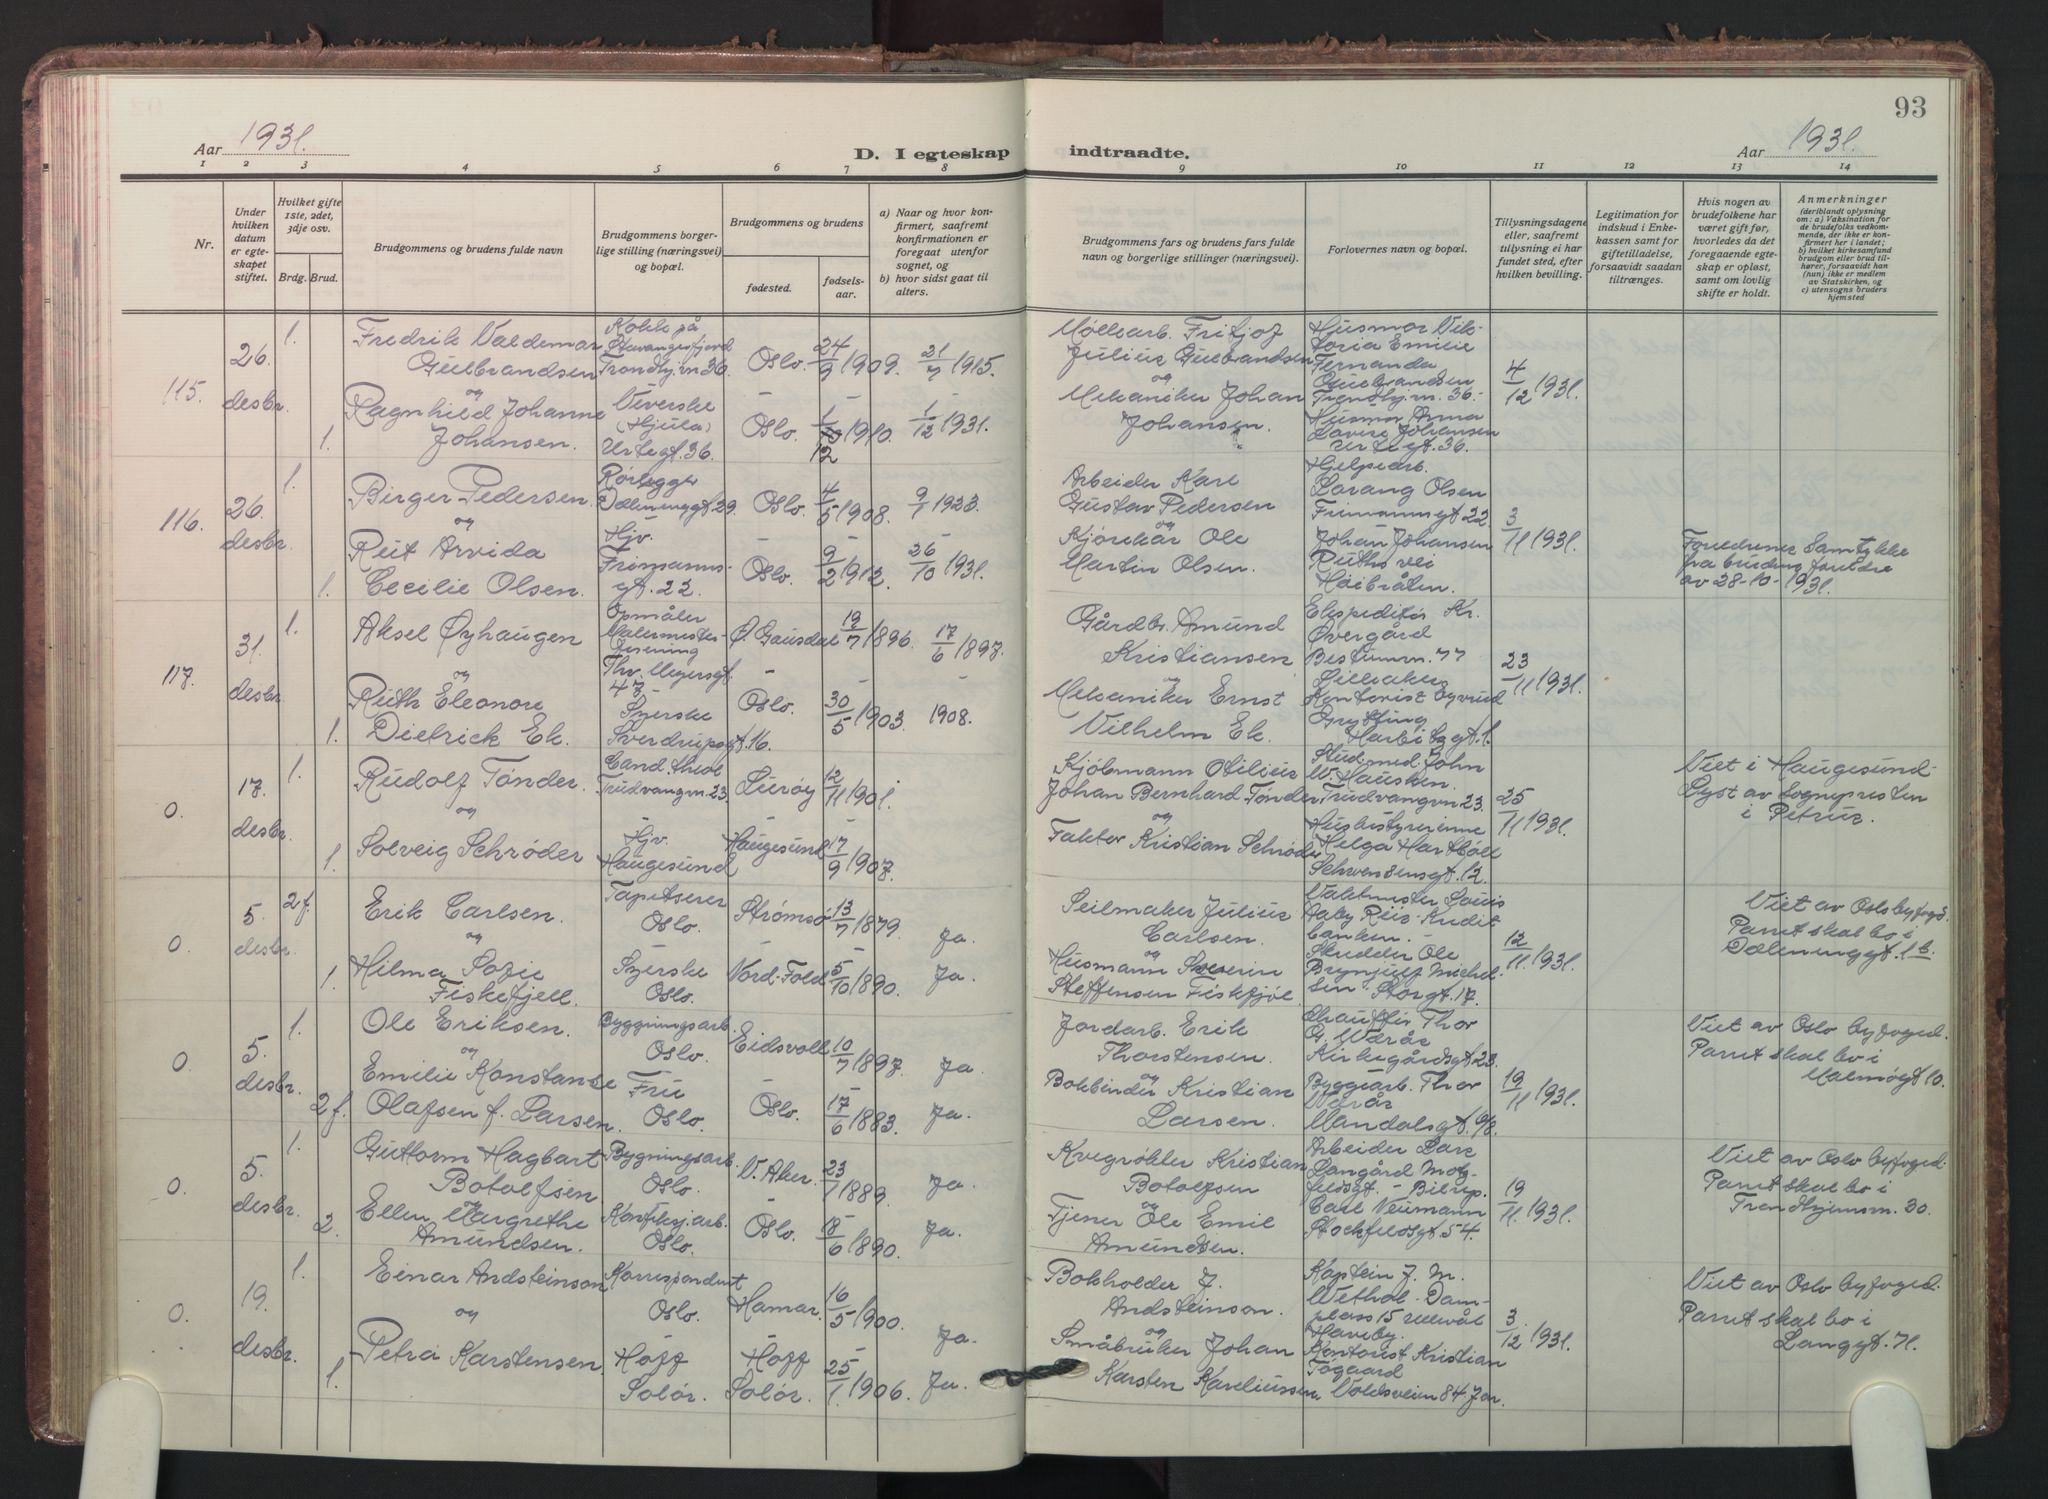 93
Aar 1931.
D. I egteskap indtraadte.
Aar 1931.
1 2 3 4 5 6 7 8 9 10 11 12 13 14
Nr.
Under hvilken datum er egteskapet stiftet.
Hvilket gifte 1ste, 2det, 3dje osv.
Brdg. Brud.
Brudgommens og brudens fulde navn
Brudgommens borgerlige stilling (næringsvei) og bopæl.
Brudgommens og brudens
fødested.
fødselsaar.
a) Naar og hvor konfirmert, saafremt konfirmationen er foregaat utenfor sognet, og
b) hvor sidst gaat til alters.
Brudgommens fars og brudens fars fulde navn og borgerlige stillinger (næringsvei).
Forlovernes navn og bopæl.
Tillysningsdagene eller, saafremt tillysning ei har fundet sted, efter hvilken bevilling.
Legitimation for indskud i Enkekassen samt for giftetilladelse, forsaavidt saadan tiltrænges.
Hvis nogen av brudefolkene har været gift før, hvorledes da det foregaaende egteskap er opløst, samt om lovlig skifte er holdt.
Anmerkninger
(deriblandt oplysning om: a) Vaksination for de brudefolks vedkommende, der ikke er konfirmert her i landet; b) hvilket kirkesamfund brudgom eller brud tilhører, forsaavidt han (hun) ikke er medlem av Statskirken, og c) utensogns bruders hjemsted
115.
26. desbr.
1.
Fredrik Valdemar
Gulbrandsen
Kokk på
Stavangerfjord
Trondhj.vn 36.
Oslo. 24/9 1909. 21/7 1915.
og
Ragnhild Johanne
Johansen.
1.
Veverske
(Hjula)
Urtegt. 36.
Oslo. 1/12 1910. 1/12 1931.
Møllearb. Fritjof
Julius Gulbrandsen
og
Mekaniker Johan
Johansen.
Husmor Vik-
toria Emilie
Fernanda
Gulbrandsen
Trondhj.vn. 36.
Husmor Anna
Lovise Johansen
Urtegt. 36.
4/12 1931.
116.
26. desbr.
1.
Birger Pedersen
Rørlegger
Dælenenggt 29
Oslo. 4/5 1908. 9/7 1923.
og
Rut Arvida
Cecilie Olsen.
1.
Hjv.
Frimanns-
gt. 22.
Oslo. 9/2 1912. 26/10 1931.
Arbeider Karl
Gustav Pedersen
og
Kjørekar Ole
Martin Olsen.
Hjelpearb.
Lorang Olsen
Frimannsgt 22.
Johan Johansen
Ruths vei
Høibråten.
3/11 1931.
Foreldrenes Samtykke
fra brudens foreldre
av 28-10-1931.
117.
31. desbr.
1.
Aksel Øyhaugen
Opmåler
Malermester-
forening
Thv. Meyersgt.
47
Ø. Gausdal 19/7 1896. 17/6 1897.
og
Ruth Eleonore
Dietrick Ek.
1.
Syerske
Sverdrupsgt. 16.
Oslo. 30/5 1903. 1908.
Gårdbr. Amund
Kristiansen
og
Mekaniker Ernst
Vilhelm Ek.
Ekspeditør Kr.
Øvergård
Bestumvn. 77
Lilleaker
Kontorist Øyvind
Grytting
Harbitzgt. 1.
23/11 1931.
0.
17. desbr.
1.
Rudolf Tønder.
Cand. theol
Trudvangvn. 23.
Lurøy 12/11 1901.
og
Solveig Schrøder
1.
Hjv.
Haugesund
Haugesund 17/9 1907.
Kjøbmann Otilius
Johan Bernhard Tønder
og
Faktor Kristian Schrøder
Stud. med. John
W. Hausken.
Trudvangvn 23.
Husbestyrerinne
Helga Hartbøll
Schwensensgt. 12.
25/11 1931.
Viet i Haugesund.
Lyst av Sognepresten
i Petrus.
0.
5. desbr.
2 f.
Erik Carlsen.
Tapetserer
Oslo.
Strømsø 13/7 1879. Ja.
og
Hilma Sofie
Fiskefjell.
1.
Syerske
Oslo.
Nord-Fold 5/10 1890. Ja.
Seilmaker Julius
Carlsen.
og
Husmann Severin
Steffensen Fiskfjel.
Vaktmester Louis
Aaby Riis-Kredit
banken.
Skredder Ole
Brynjulf Michel-
sen Storgt. 17.
12/11 1931.
Viet av Oslo byfogd.
Parret skal bo i
Dælenenggt. 1 b.
0.
5. desbr.
1.
Ole Eriksen.
Bygningsarb.
Oslo.
Eidsvoll 10/7 1897. Ja.
og
Emilie Konstanse
Olafsen f. Larsen.
2 f.
Fru
Oslo.
Oslo. 17/6 1883. Ja.
Jordarb. Erik
Thorstensen.
og
Bokbinder Kristian
Larsen.
Chauffør Thor
G. Wærås
Kirkegårdsgt 23.
Byggearb. Thor
Wærås
Mandalsgt. 6/8.
19/11 1931.
Viet av Oslo byfoged.
Parret skal bo i
Malmøgt 10.
0.
5. desbr.
1.
Guttorm Hagbart
Botolfsen
Bygningsarb.
Oslo.
V. Aker. 23/7 1889. Ja.
og
Ellen Margrethe
Amundsen.
2.
Konfeksj.arb.
Oslo.
Oslo. 18/6 1890. Ja.
Kvegrøkter Kristian
Botolfsen
og
Tjener Ole Emil
Amundsen.
Arbeider Lars
Carl Neumann
Stockfledsgt. 54.
19/11 1931.
Viet av Oslo byfoged.
Parret skal bo i
Trondhjemsvn. 30.
0.
19. desbr.
1.
Einar Andsteinson
Korrespondent
Oslo.
Hamar. 16/5 1900. Ja.
og
Petra Karstensen
1.
Hoff
Solør.
Hoff
Solør. 25/1 1906. Ja.
Bokholder J.
Andsteinson.
og
Småbruker Johan
Karsten Kareliussen
Kaptein J. M.
Wethal. Dam-
plass 15 Ullevål
Haveby.
Kontorist Kristian
Togaard
Voldsveien 84. Jar.
3/12 1931.
Viet av Oslo byfoged.
Parret skal bo i
Langgt. 71.